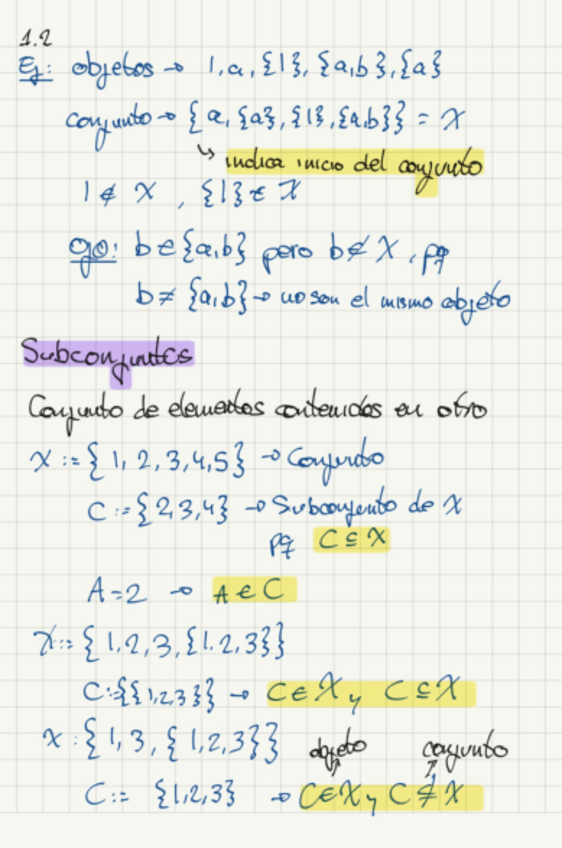 1.2
Ej: objetos → 1, a, {1}, {a,b}, {a}
conjunto → {a, {a}, {1}, {a,b}} = X
↳ indica inicio del conjunto
1 ∉ X , {1} ∈ X
OJO: b ∈ {a,b} pero b ∉ X, pq
b ≠ {a,b} → no son el mismo objeto
Subconjuntos
Conjunto de elementos contenidos en otro
X := {1, 2, 3, 4, 5} → Conjunto
C := {2,3,4} → Subconjunto de X
pq C ⊆ X
A = 2 → A ∈ C
X := {1, 2, 3, {1, 2, 3}}
C := {{1,2,3}} → C ∈ X y C ⊆ X
X : {1, 3, {1,2,3}} objeto conjunto
C := {1,2,3} → C ∈ X y C ⊈ X